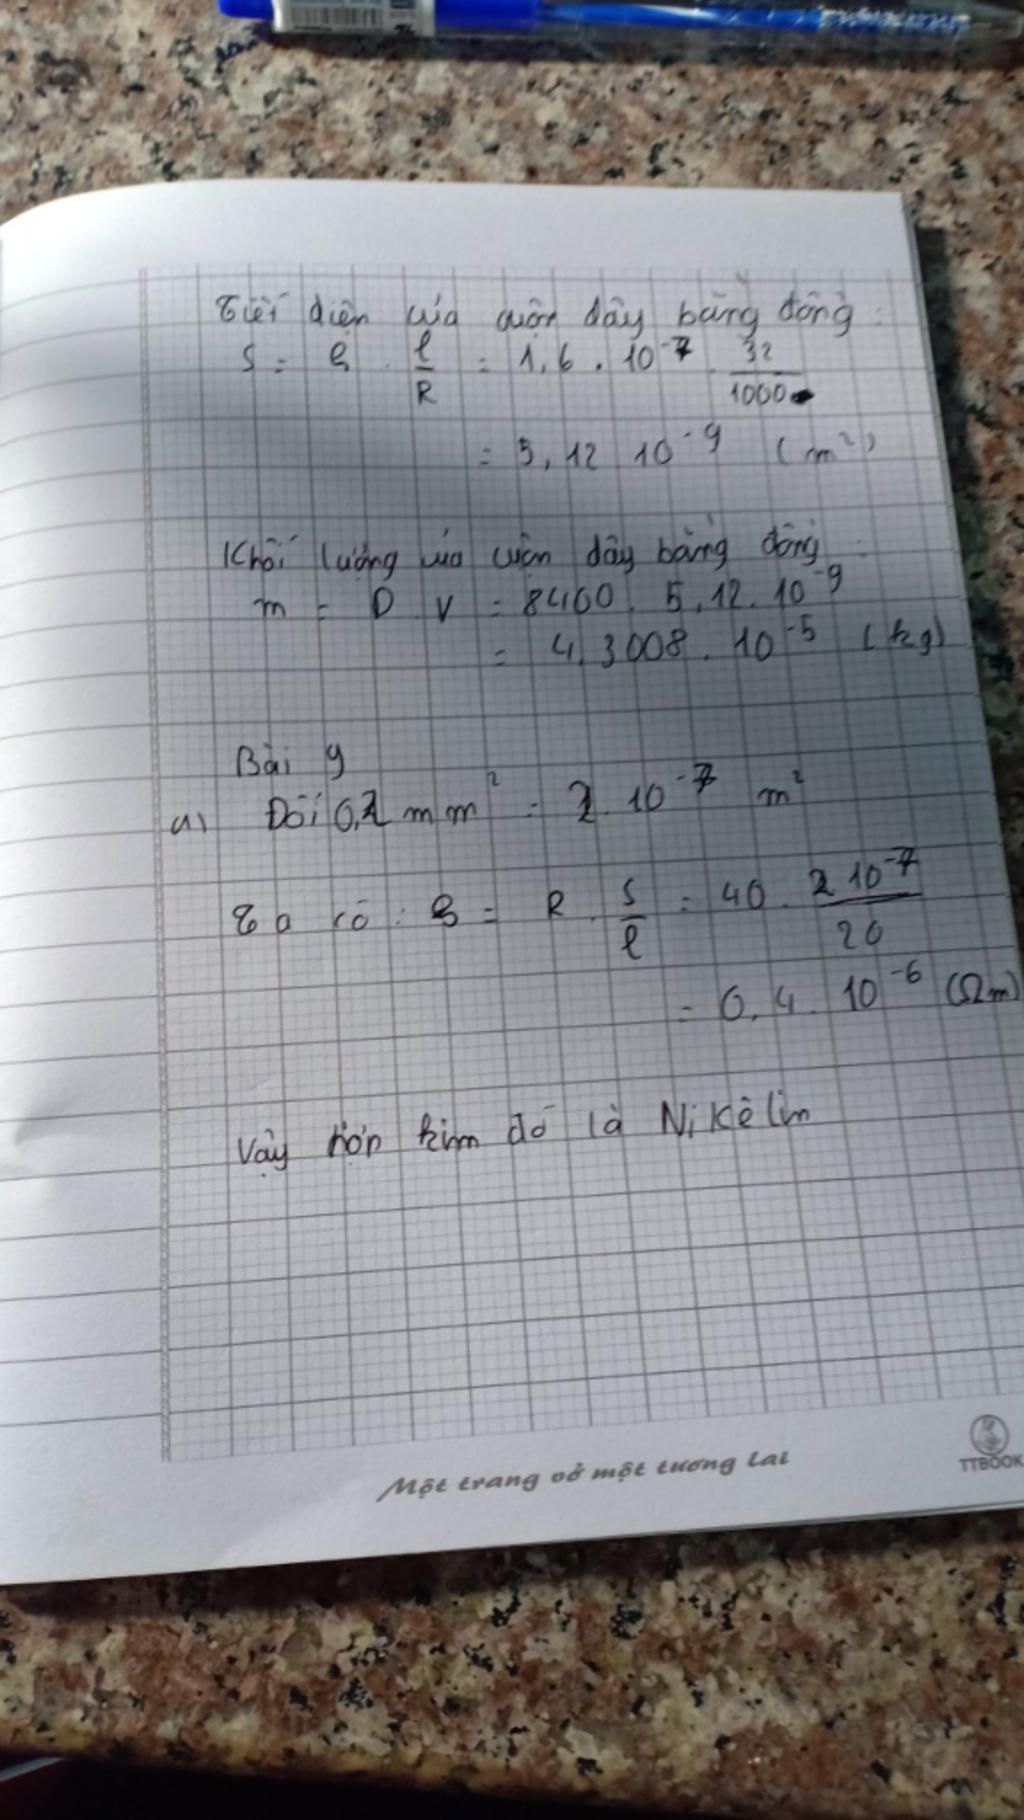 Tiết diện của cuộn dây bằng đồng :
S = ρ . l/R = 1,6 . 10^-7 . 32/1000
= 5,12 10^-9 (m²)
Khối lượng của cuộn dây bằng đồng :
m = D . V = 8400 . 5,12 . 10^-9
= 4,3008 . 10^-5 (kg)
Bài 9
a) Đổi 0,2 mm² = 2 . 10^-7 m²
Ta có : ρ = R . S/l = 40 . 2 10^-7/20
= 0,4 . 10^-6 (Ωm)
Vậy hợp kim đó là Nikêlin
Một trang vở một tương lai
TTBOOK